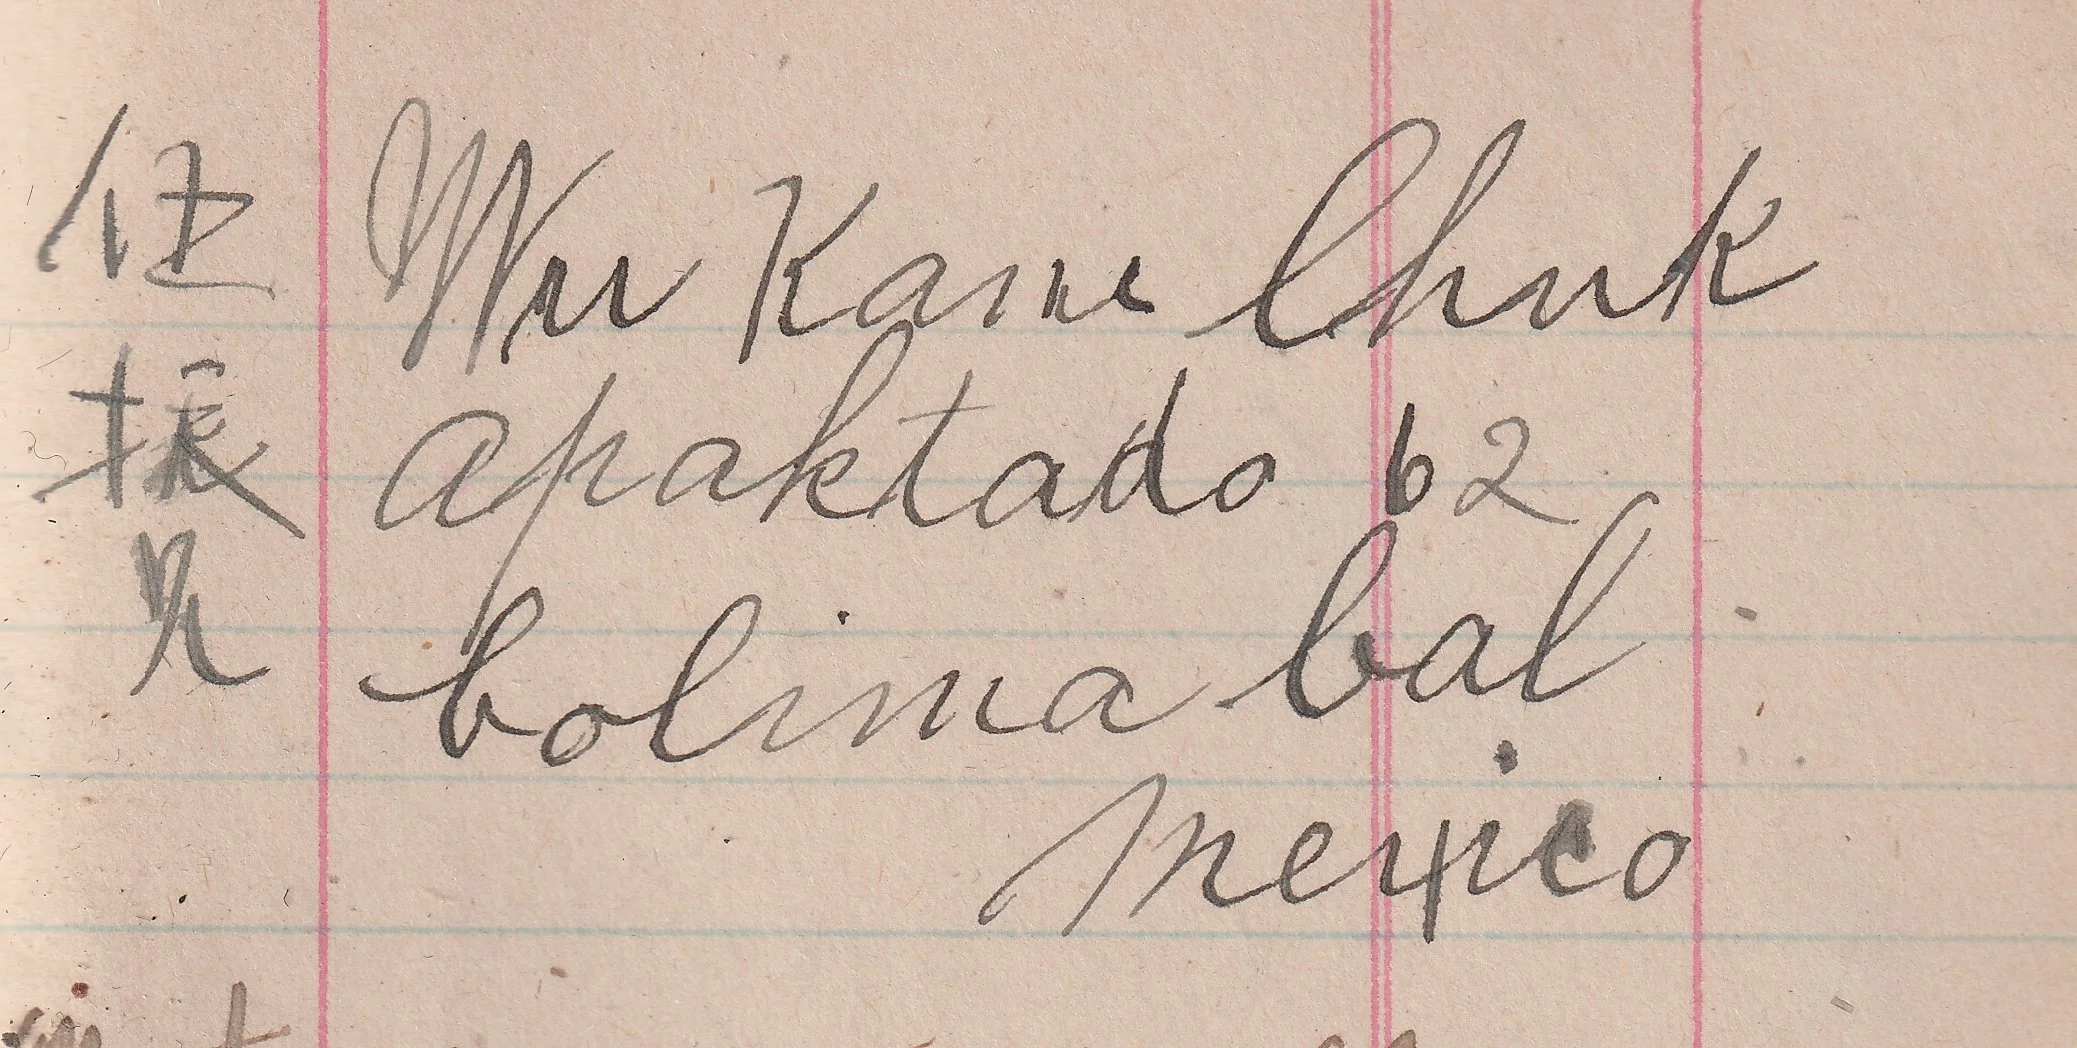 Wu Kam Chuk
apaktado 62
Colima Cal
mexico